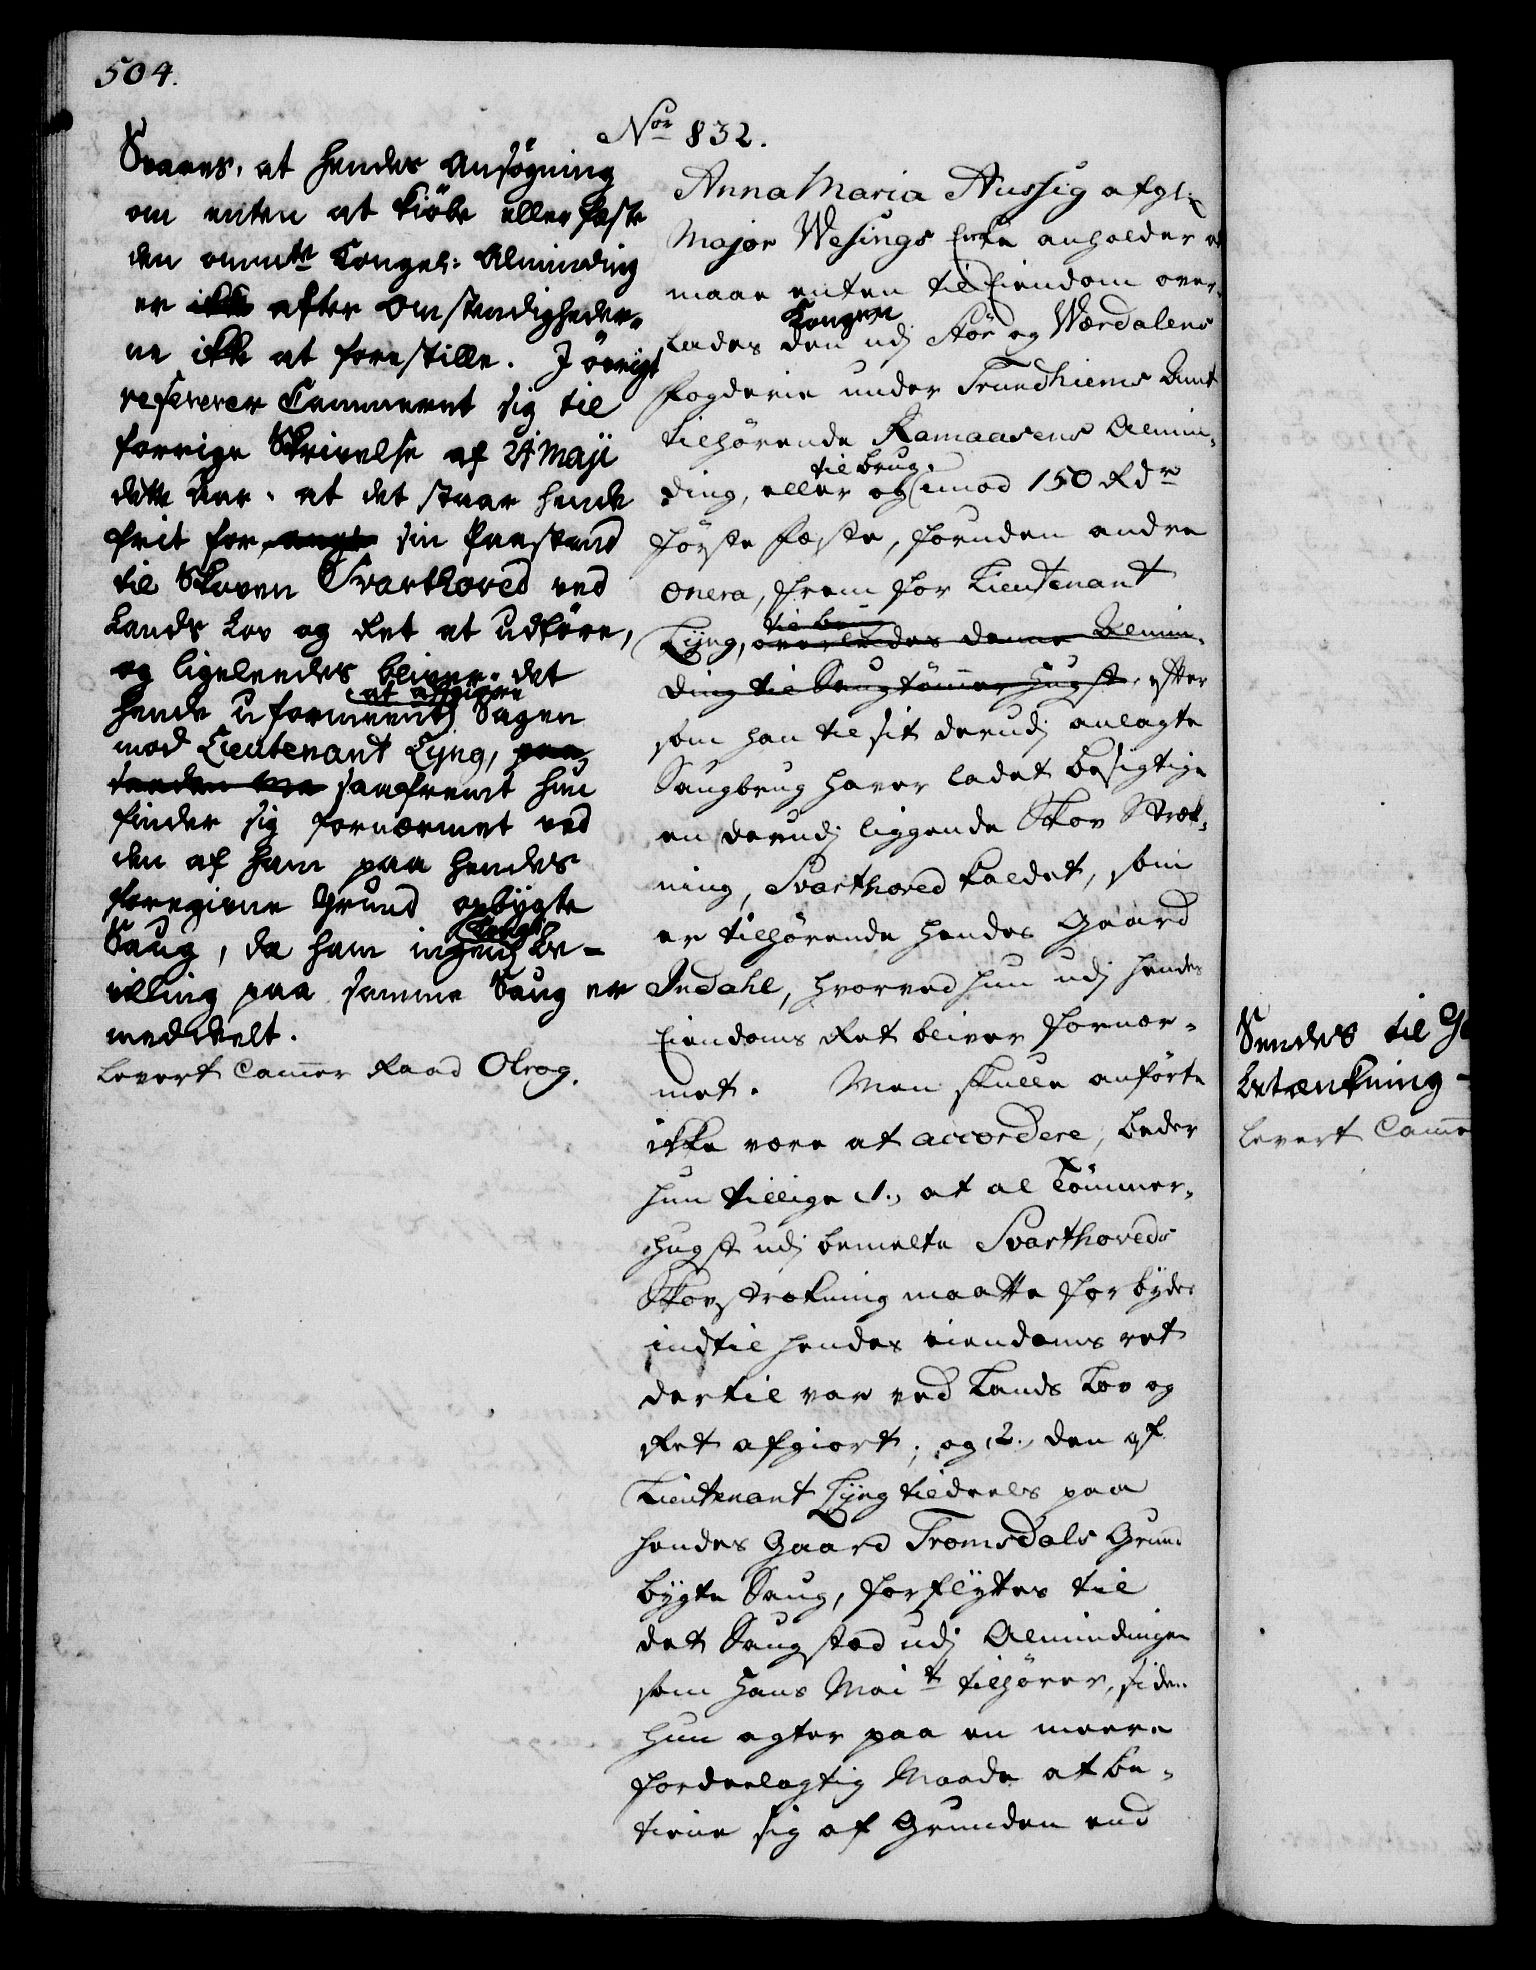 504.
Svares, at hendes Ansøgning
om enten at kiöbe eller fæste
den ommte Kongel: Alminding
er ikke efter Omstendigheder-
ne ikke at forestille. I øvrigt
refererer Cammeret sig til
forrige Skrivelse af 24 Maji
dette Aar, at det staar hende
frit for sin Paastand
til Skoven Svarthoved ved
Lands Lov og Ret at udføre,
og ligeleedes bliver det
at afgiøre
hende uformeent Sagen
mod Lieutenant Lyng,
saafremt hun
finder sig fornærmet ved
den af ham paa hendes
foregivne Grund opbygte
Saug, da ham ingen Be-
villing paa samme Saug er
meddeelt.
Levert Cammer Raad Olrog.
Nor 832.
Anna Maria Aussig afgl:
Major Wesings Enke anholder at
maae enten til Eiendom over-
Kongen
lades den udj Stör og Værdalens
Fogderie under Trundhiems Amt
tilhörende Ramaasens Almin-
til brug
ding, eller og imod 150 Rdr
förste Fæste, foruden andre
onera, frem for Lieutenant
til brug
Lyng, overlades denne Almin-
ding til Saugtömmer Hugst, efter
som han til sit derudj anlagte
Saugbrug haver ladet besigtige
en derudj liggende Skov Stræk-
ning, Svarthoved kaldet, som
er tilhørende hendes Gaard
Indahl, hvorved hun udj hendes
Eiendoms Ret bliver fornær-
met. Men skulle anførte
ikke være at accordere, beder
hun tillige 1., at al Tömmer-
Hugst udj bemelte Svarthoveds
Skovstrækning maatte forbydes
indtil hendes eiendoms ret
dertil var ved Lands Lov og
Ret afgiort; og 2., den af
Lieutenant Lyng tildeels paa
hendes Gaard Tromsdals Grund
bygte Saug, forflyttes til
det Saugsted udj Almindingen
som Hans Mait tilhører, siden
hun agter paa en meere
fordeelagtig Maade at be-
tiene sig af Grunden end
Sendes til
betænkning -
Levert